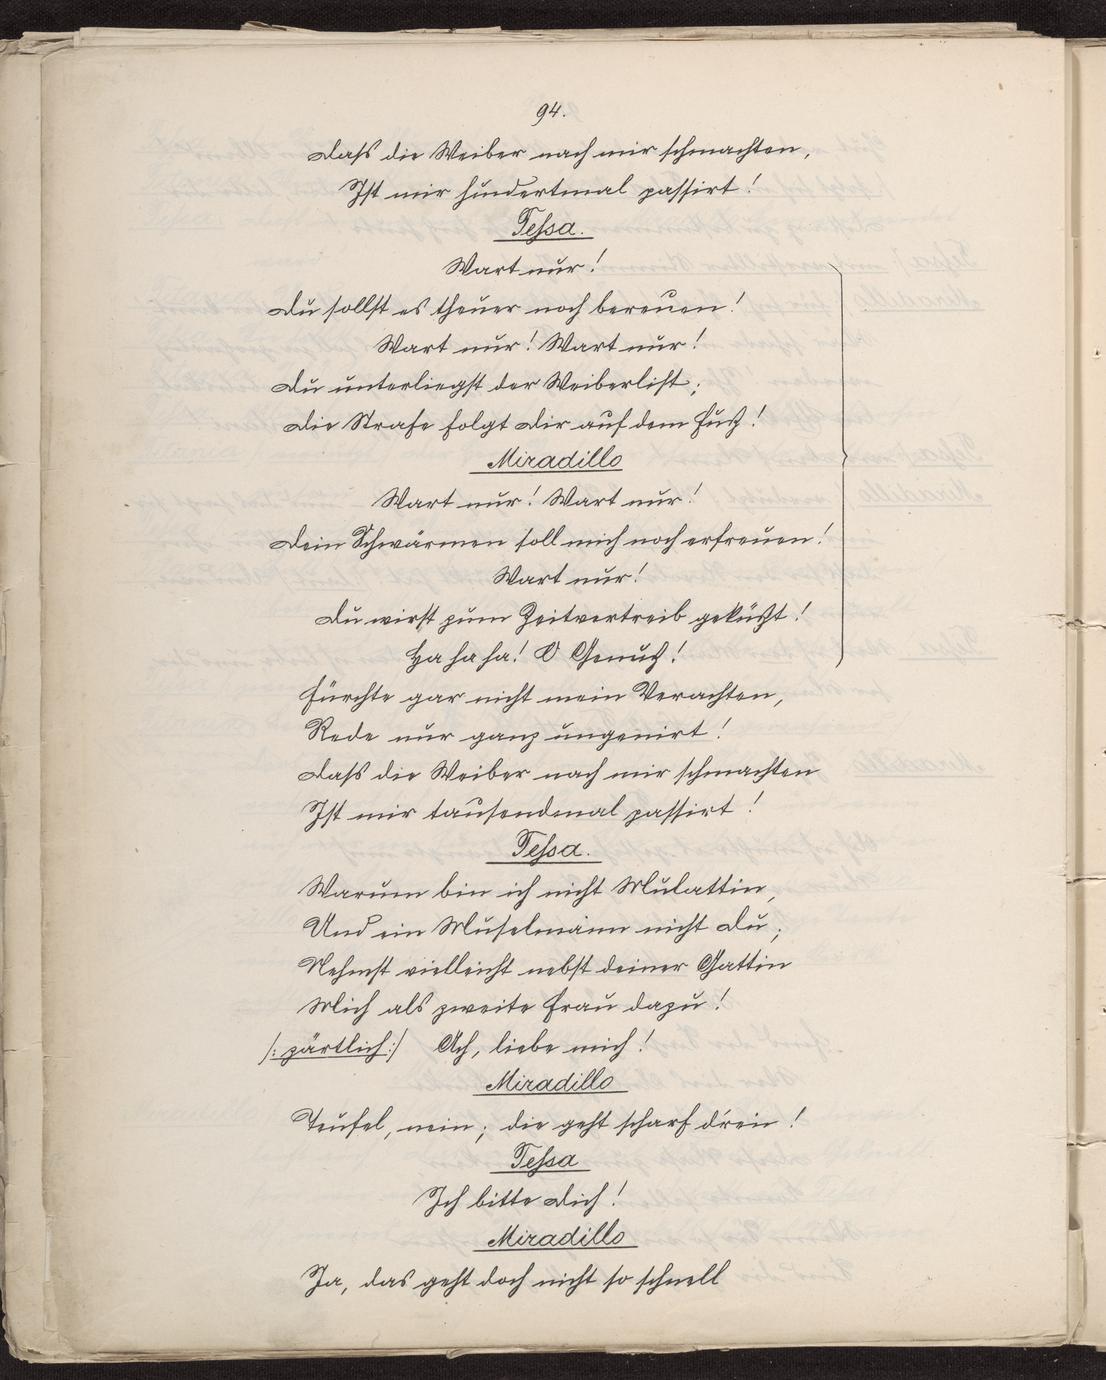 94.
Daſs die Weiber nach mir schmachten,
Ist mir hundertmal passirt!
Teſsa.
Wart nur!
Du sollst es theuer noch bereuen!
Wart nur! Wart nur!
Du unterliegst der Weiberlist;
Die Strafe folgt Dir auf dem Fuß!
Miradillo
Wart nur! Wart nur!
Dein Schwärmen soll mich noch erfreuen!
Wart nur!
Du wirst zum Zeitvertreib geküßt!
Ha ha ha! O Genuß!
Fürchte gar nicht mein Verachten,
Rede nur ganz ungenirt!
Daſs die Weiber nach mir schmachten
Ist mir tausendmal passirt!
Teſsa.
Warum bin ich nicht Mulattin,
Und ein Muselmann nicht Du;
Nehmst vielleicht nebst deiner Gattin
Mich als zweite Frau dazu!
/: zärtlich :/ Ach, liebe mich!
Miradillo
Teufel, nein; die geht scharf d'rein!
Teſsa
Ich bitte Dich!
Miradillo
Ja, das geht doch nicht so schnell